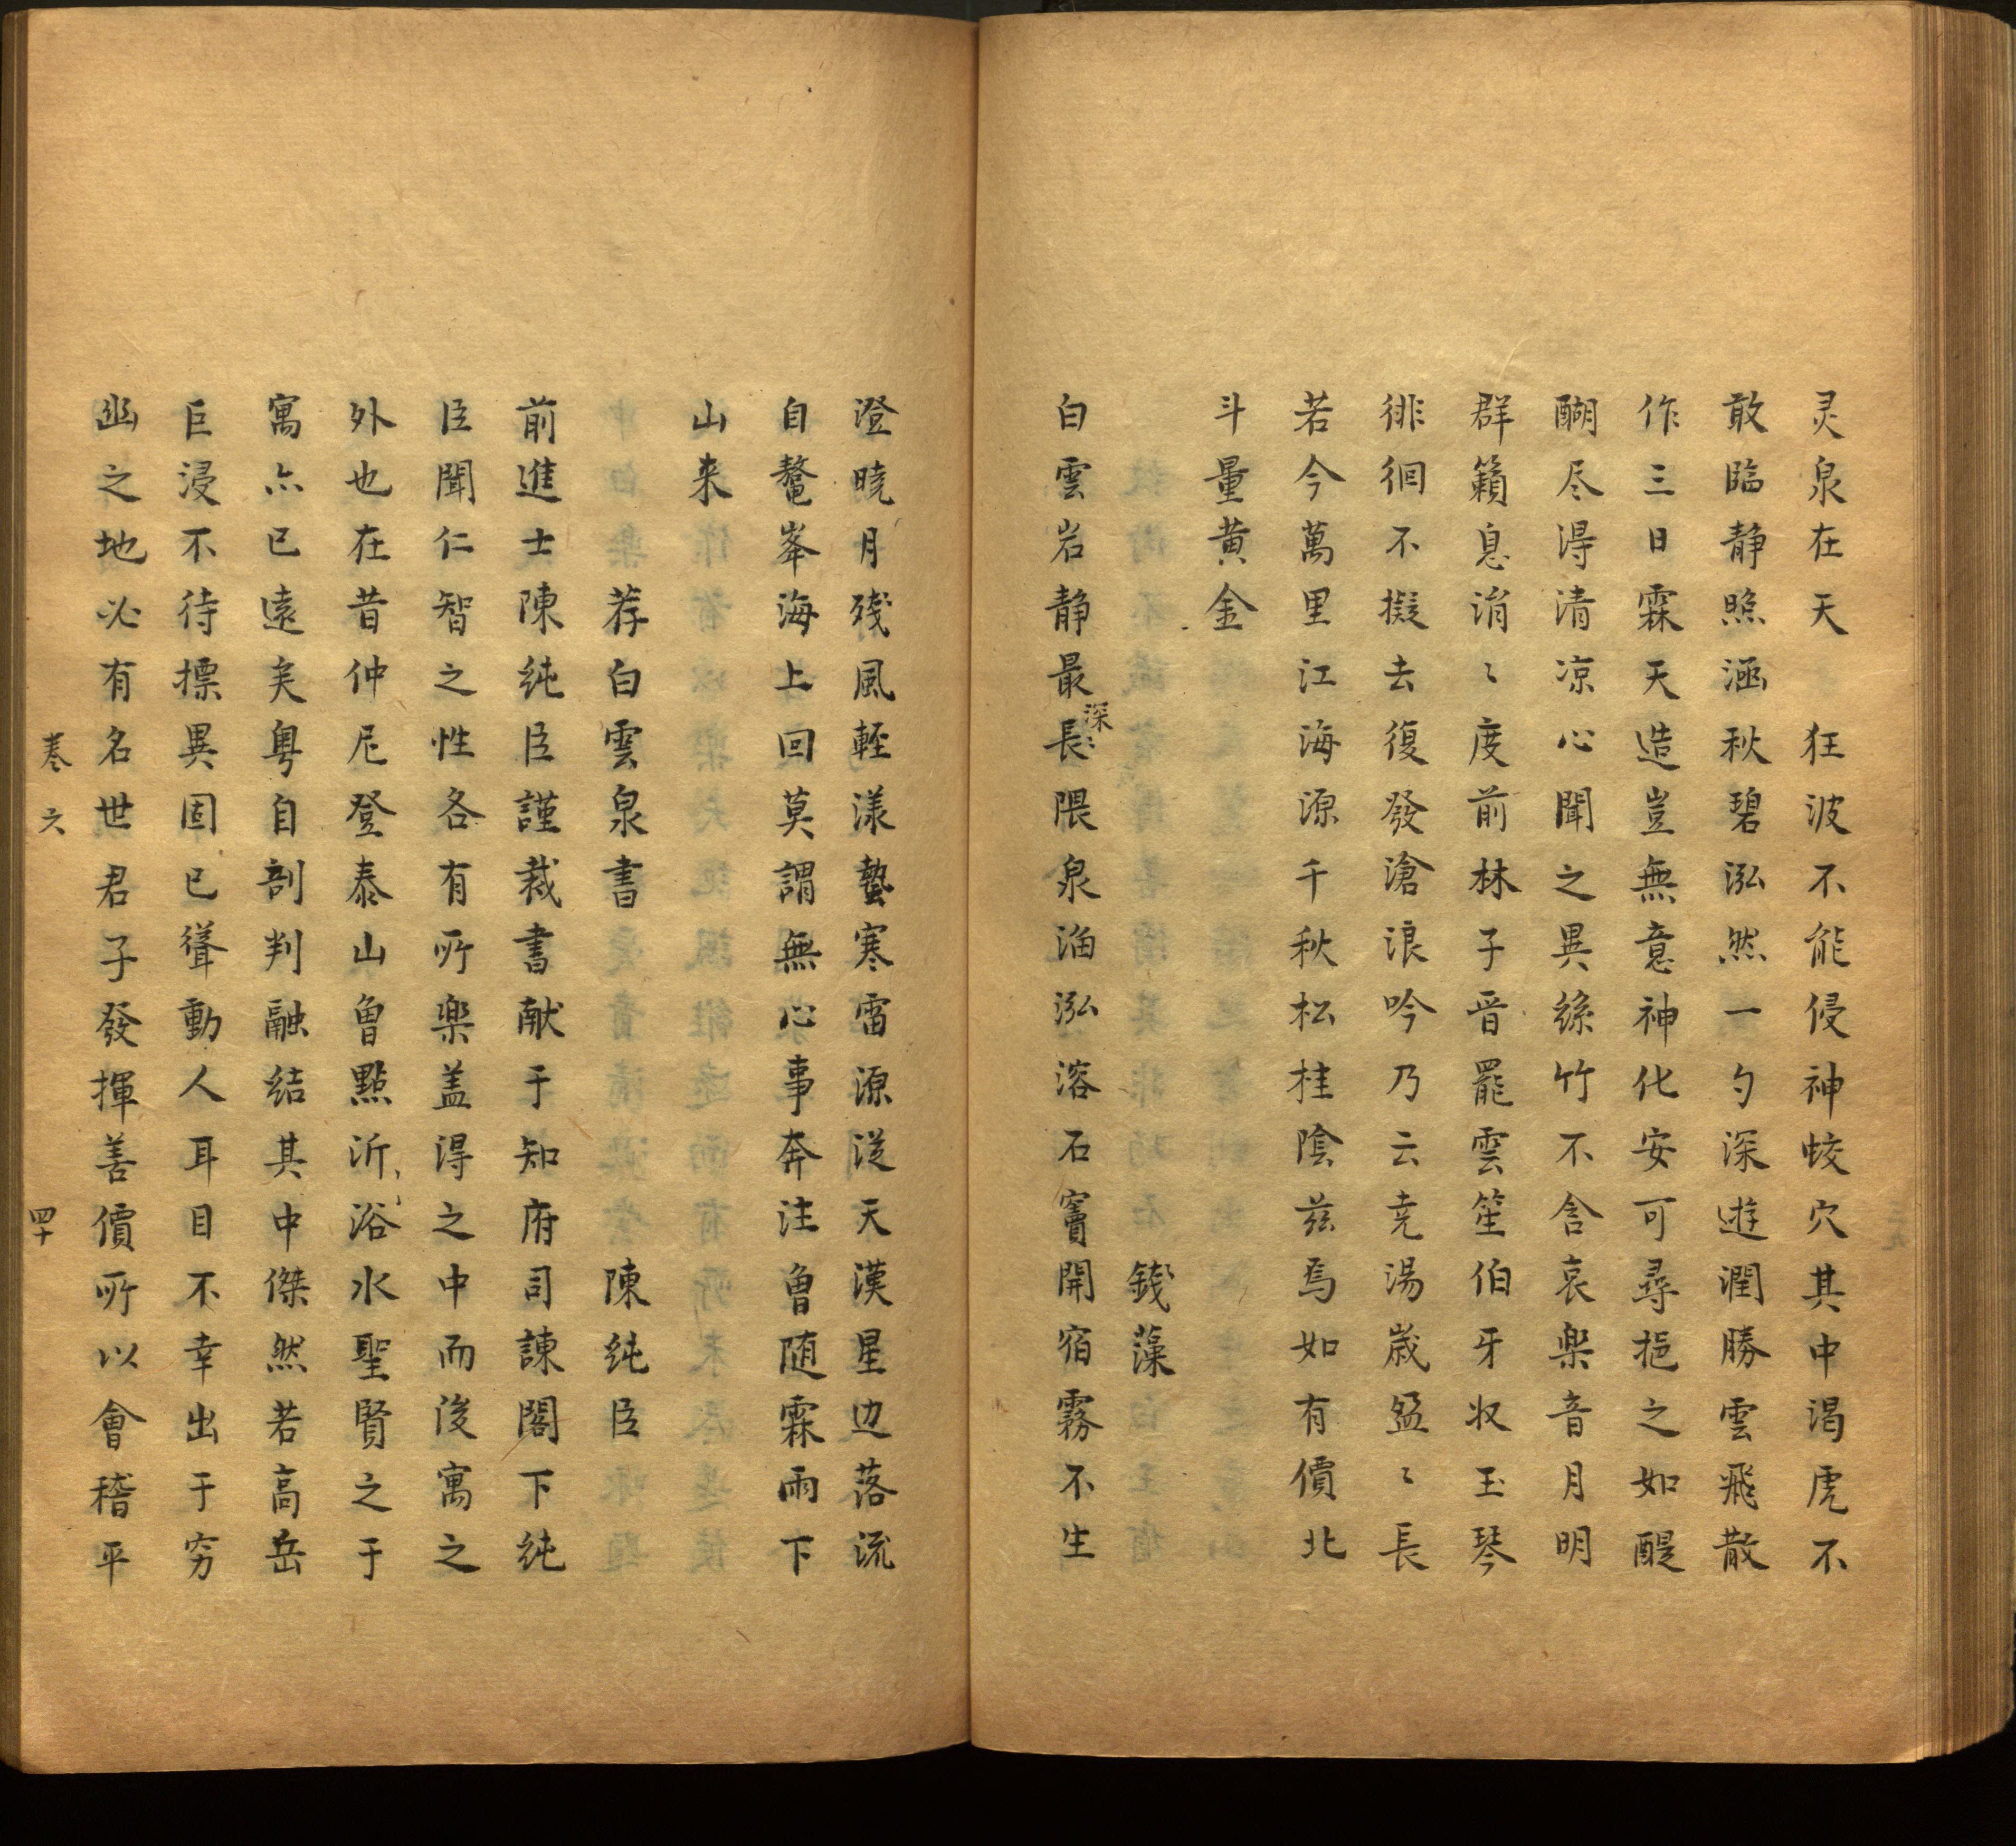 灵泉在天　狂波不能侵神蛟穴其中渴虎不
敢臨静照涵秋碧泓然一勺深遊潤勝雲飛散
作三日霖天造豈無意神化安可尋挹之如醍
醐尽得清凉心聞之異絲竹不含哀楽音月明
群籟息涓〻度前林子晋罷雲笙伯牙収玉琴
徘徊不擬去復發滄浪吟乃云尭湯歳盈〻長
若今萬里江海源千秋松桂陰兹焉如有價北
斗量黄金
錢藻
白雲岩静最長隈泉淄泓溶石竇開宿霧不生
深
澄曉月殘風輊漾蟄寒雷源従天漢星边落流
自鼇峯海上回莫謂無心事奔注曾随霖雨下
山来
荐白雲泉書　陳純臣
前進士陳純臣謹裁書献于知府司諌閣下純
臣聞仁智之性各有所楽盖得之中而後寓之
外也在昔仲尼登泰山曾點沂浴水聖賢之于
寓亦已遠矣粤自剖判融結其中傑然若高岳
巨浸不待摽異固已聳動人耳目不幸出于穷
幽之地必有名世君子發揮善價所以會稽平
卷六
四十